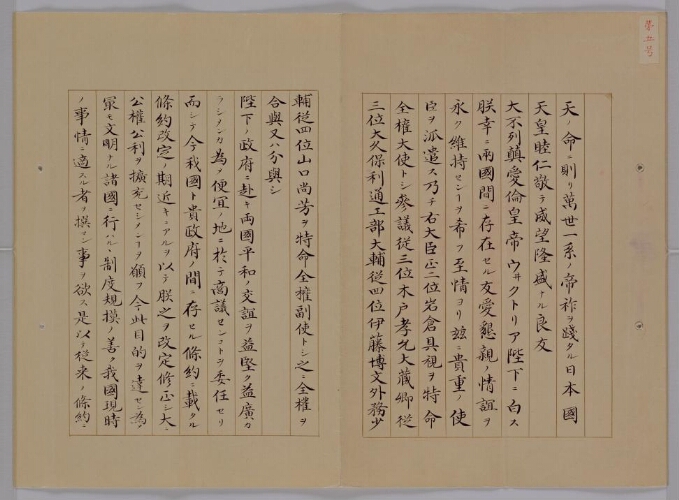 第五号
天ノ命ニ則リ萬世一系ノ帝祚ヲ踐タル日本國
天皇睦仁敬テ威望隆盛ナル良友
大不列顛愛倫皇帝ウヰクトリア陛下ニ白ス
朕幸ニ兩國間ニ存在セル友愛懇親ノ情誼ヲ
永ク維持センヿヲ希フ至情ヨリ玆ニ貴重ノ使
臣ヲ派遣ス乃チ右大臣正二位岩倉具視ヲ特命
全權大使トシ參議從三位木戶孝允大蔵卿從
三位大久保利通工部大輔從四位伊藤博文外務少
輔從四位山口尚芳ヲ特命全權副使トシ之ニ全權ヲ
合與又ハ分與シ
陛下ノ政府ニ赴キ兩國平和ノ交誼ヲ益堅ク益廣カ
ラシメンカ為メ便宜ノ地ニ於テ商議センコトヲ委任セリ
而シテ今我國ト貴政府ノ間ニ存セル條約ニ載タル
條約改定ノ期近キニアルヲ以テ朕之ヲ改定修正シ大ニ
公權公利ヲ擴充セシメンヿヲ願フ今此目的ヲ達セン為メ
最モ文明ナル諸國ニ行ハルヽ制度規模ノ善ク我國現時
ノ事情ニ適スル者ヲ撰マン事ヲ欲ス是以テ從来ノ條約ニ